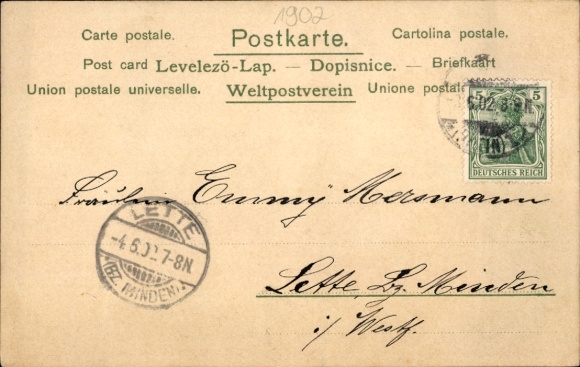 1902
Carte postale. Postkarte. Cartolina postale.
Post card Levelező-Lap. — Dopisnice. — Briefkaart
Union postale universelle. Weltpostverein Unione postale
5 5
6.02. 8-9N.
DEUTSCHES REICH
Fräulein Emmy Mersmann
LETTE
-4.6.02.7-8N.
(BZ. MINDEN)
Lette, Bz. Minden
i/ Westf.